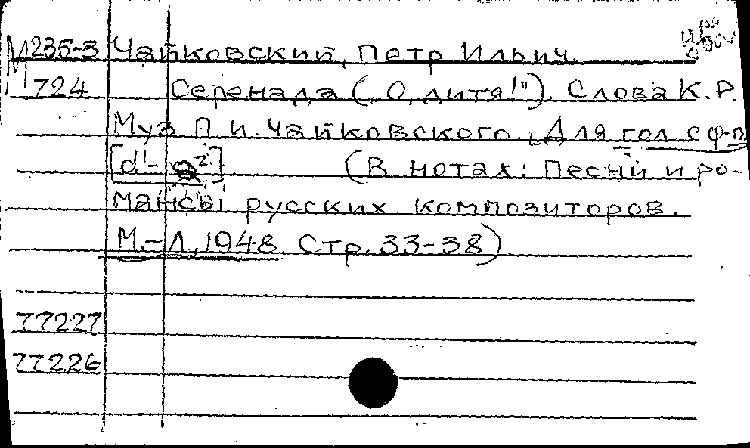 М235-3 Чайковский, Петр Ильич.
М724 Серенада („О, дитя!"). Слова К. Р.
Муз П. И. Чайковского. Для гол с ф-п
[d¹- ²] (В нотах: Песни и ро-
мансы русских композиторов.
М.-Л, 1948 Стр. 33-38)
77227
77226